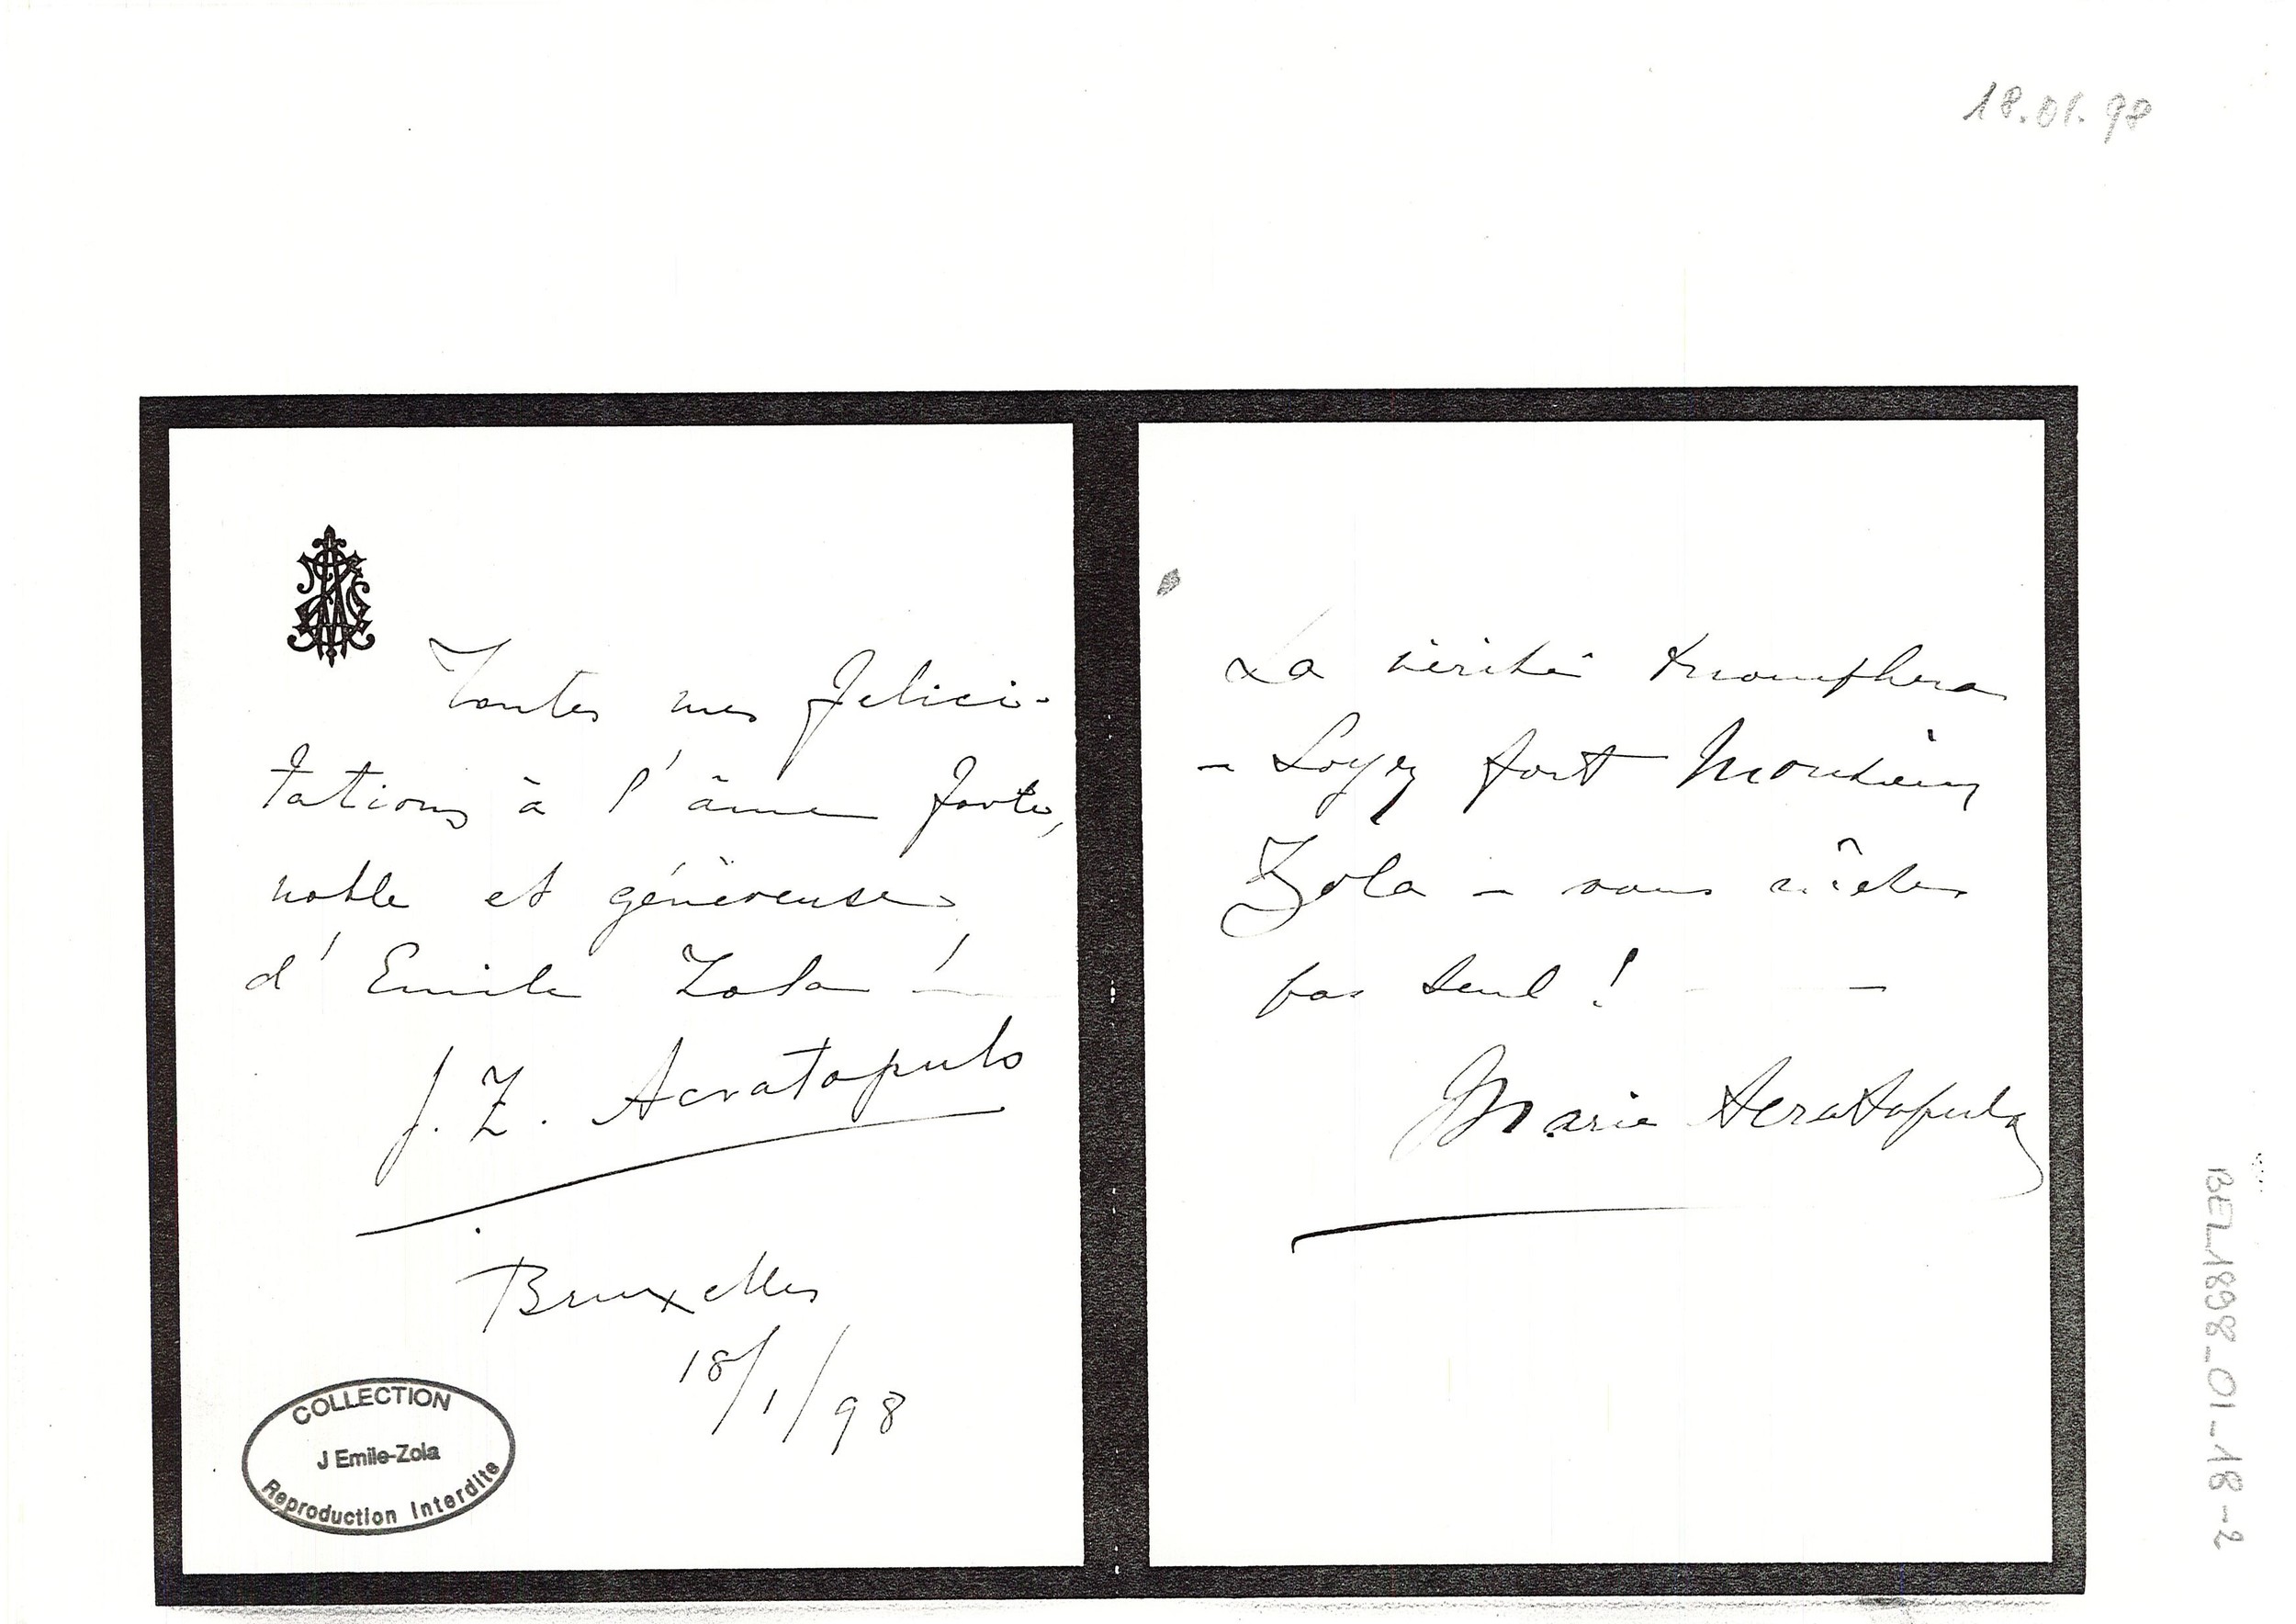 18.01.98
Toutes mes felici-
tations à l'âme forte,
noble et généreuse
d'Emile Zola !
J. Z. Acratopulo
Bruxelles
18/1/98
COLLECTION
J Emile-Zola
Reproduction Interdite
La vérité triomphera
- Soyez fort Monsieur
Zola - vous n'êtes
pas seul ! -
Marie Acratopulo
BEL_1898_01_18-2